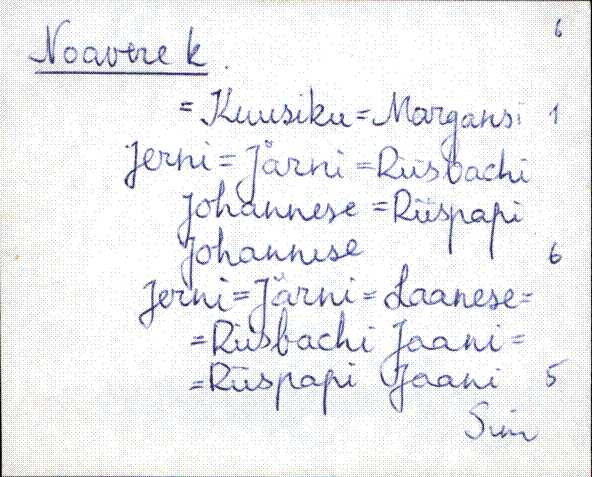 6
Noavere k.
= Kuusiku = Margansi 1
Jerni = Järni = Riisbachi
Johannese = Riispapi
Johannese 6
Jerni = Järni = Laanese =
= Riisbachi Jaani =
= Riispapi Jaani 5